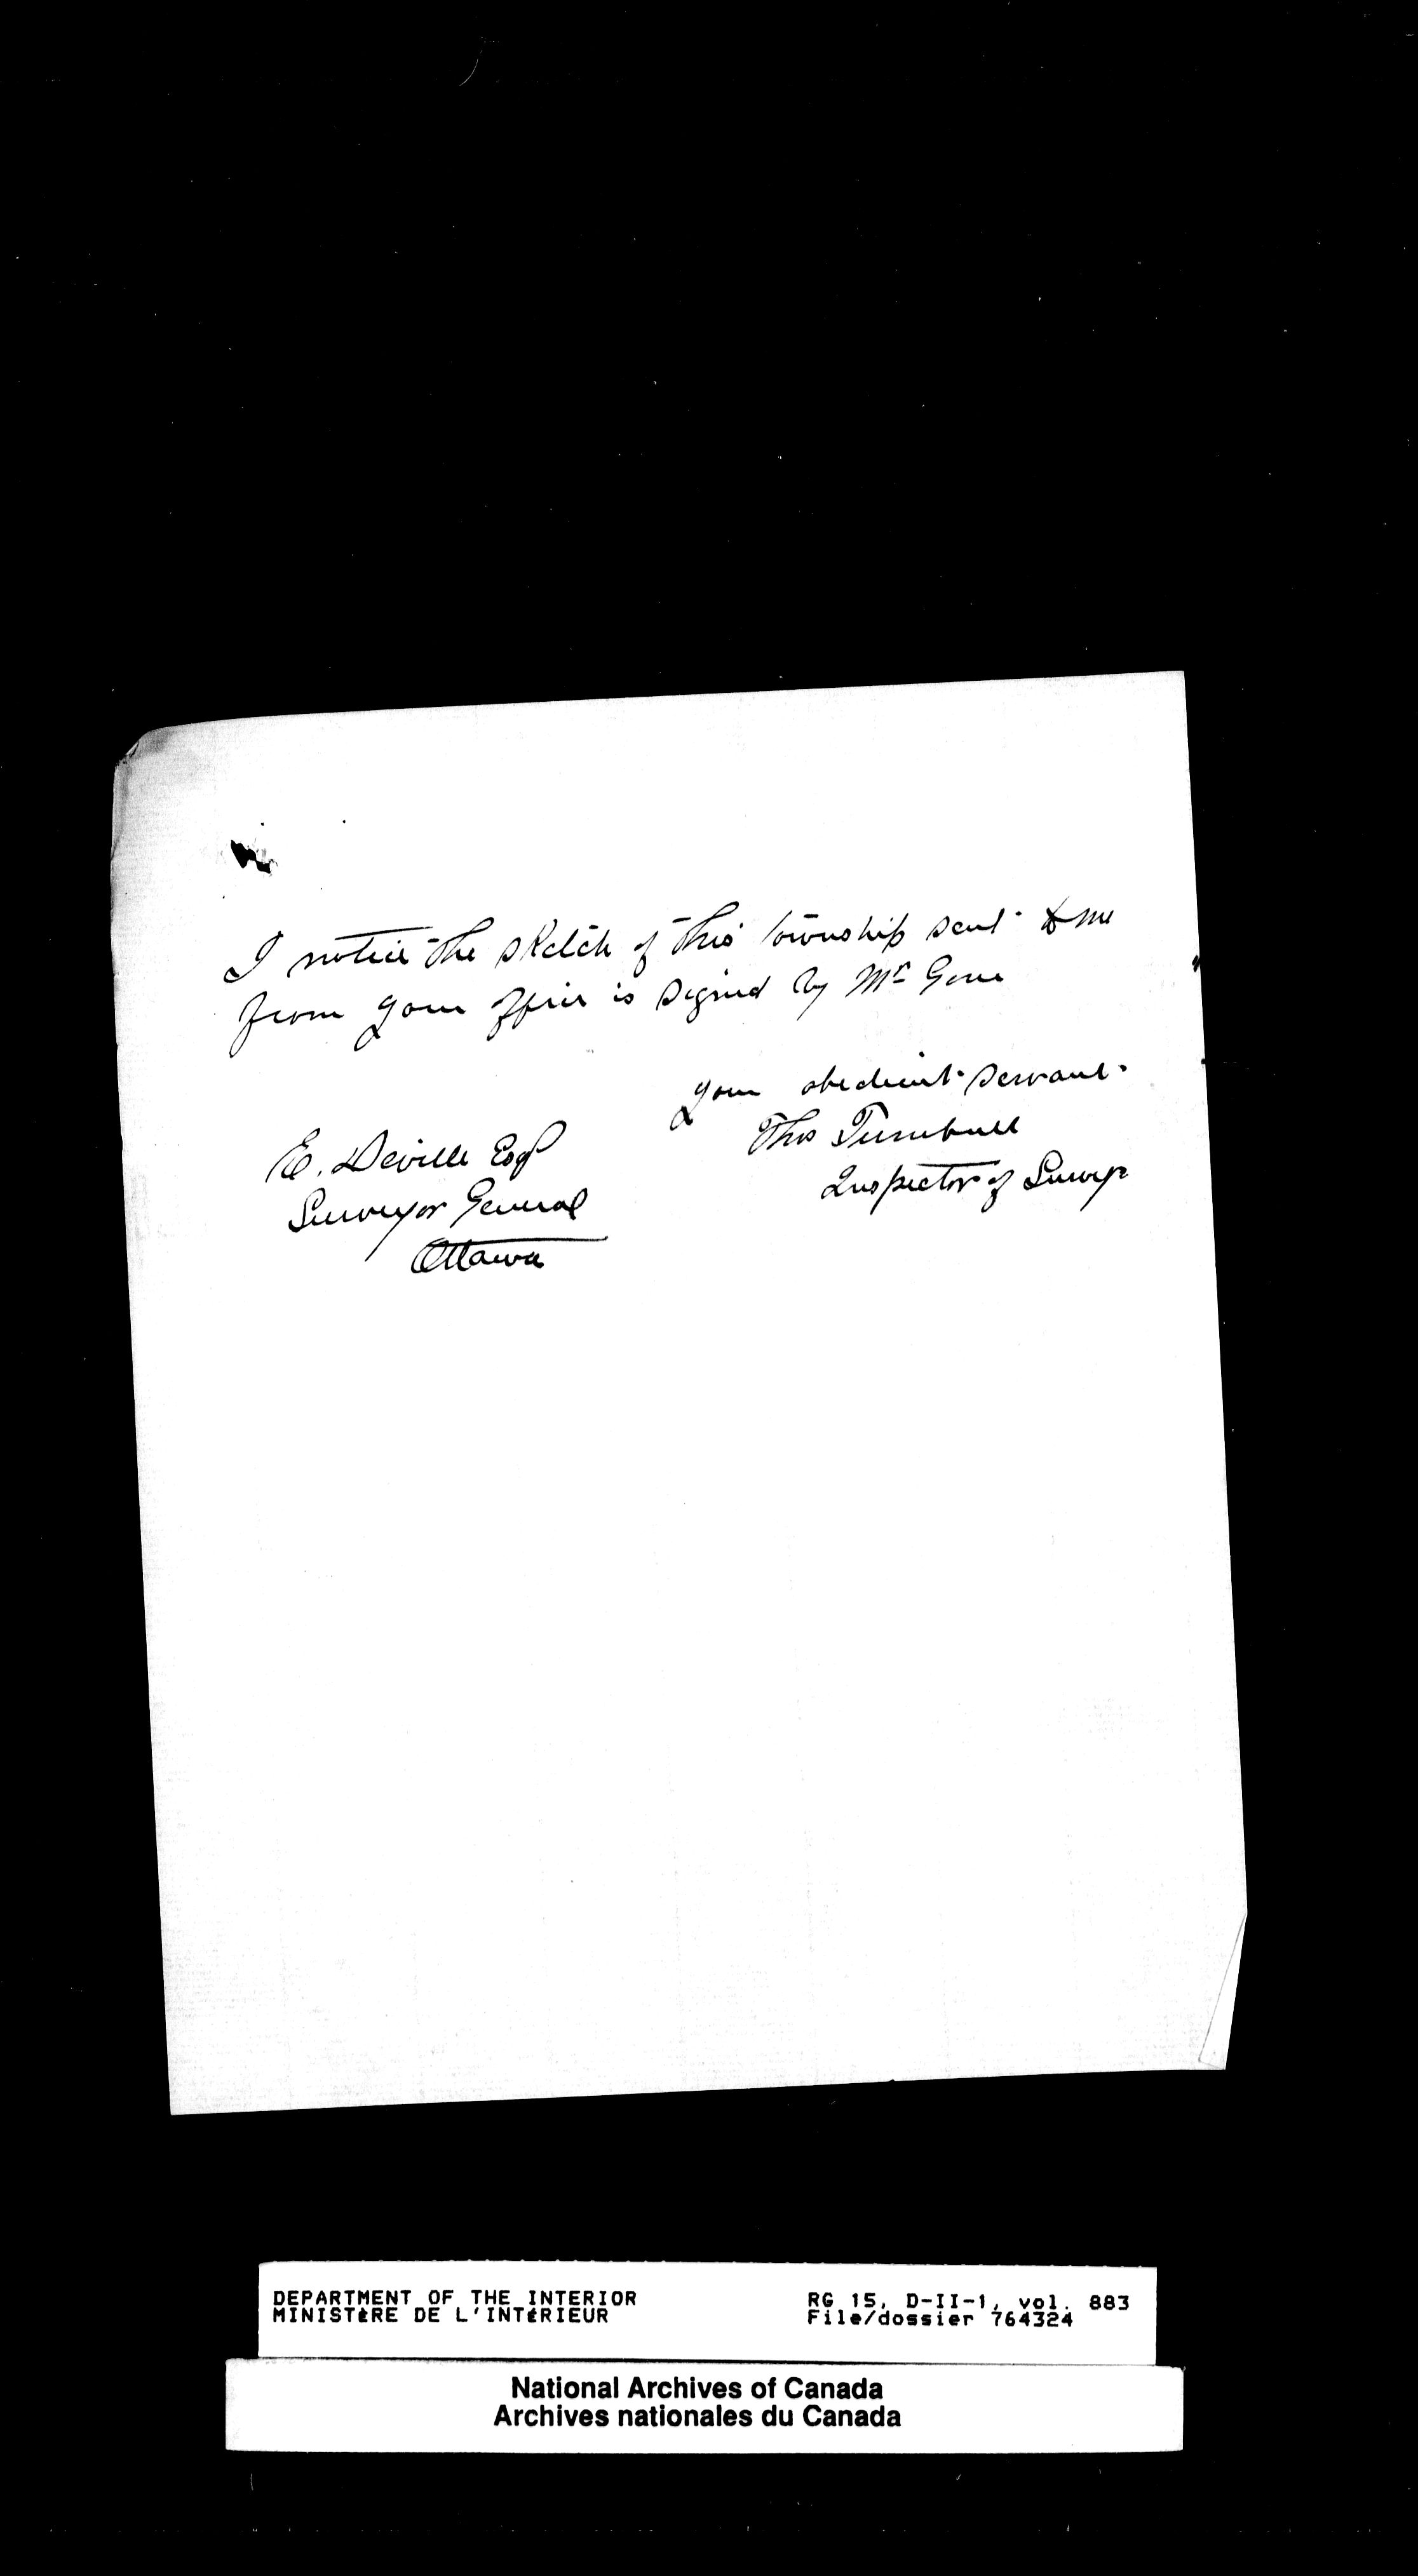 I notice the sketch of this township sent to me
from your office is signed by Mr
your obedient servant
Thos Turnbull
Inspector of Surveys
E. Deville Esq
Surveyor General
Ottawa
DEPARTMENT OF THE INTERIOR
MINISTÈRE DE L'INTÉRIEUR
RG 15, D-II-1, vol. 883
File/dossier 764324
National Archives of Canada
Archives nationales du Canada